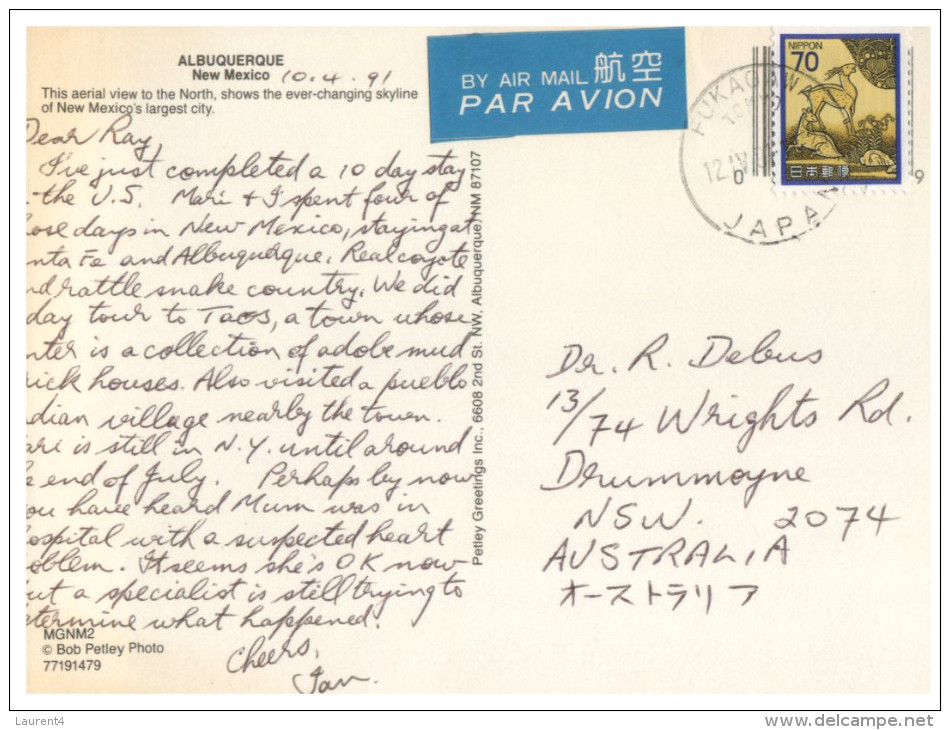 ALBUQUERQUE
New Mexico 10.4.91
This aerial view to the North, shows the ever-changing skyline
of New Mexico's largest city.
Dear Ray,
I've just completed a 10 day stay
the U.S. Mari & I spent four of
ose days in New Mexico, staying at
nta Fe and Albuquerque. Real coyote
nd rattle snake country. We did
day tour to Taos, a town whose
nter is a collection of adobe mud
rick houses. Also visited a pueblo
ndian village nearby the town.
ari is still in N.Y. until around
e end of July. Perhaps by now
ou have heard Mum was in
ospital with a suspected heart
oblem. It seems she's OK now
ut a specialist is still trying to
etermine what happened.
Cheers,
Ian.
MGNM2
© Bob Petley Photo
77191479
Petley Greetings Inc., 6608 2nd St. NW, Albuquerque, NM 87107
BY AIR MAIL 航空
PAR AVION
NIPPON
70
日本郵便
FUKAGAW
TOKYO
12.IV
JAPAN
9
Dr. R. Debus
13/74 Wrights Rd.
Drummoyne
NSW. 2074
AUSTRALIA
オーストラリア
Laurent4
www.delcampe.net